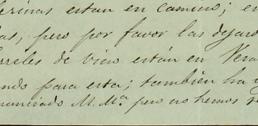 erinas estan en camino; en
as, pero por favor las dejare
rreles de vino están en Vera
ndo para esta; también ha
nunciado M. Mª. pero no hemos r